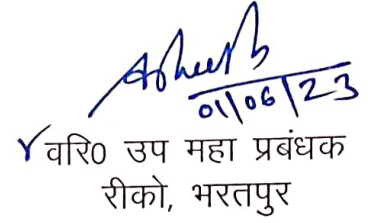 01/06/23
वरि0 उप महा प्रबंधक
रीको, भरतपुर